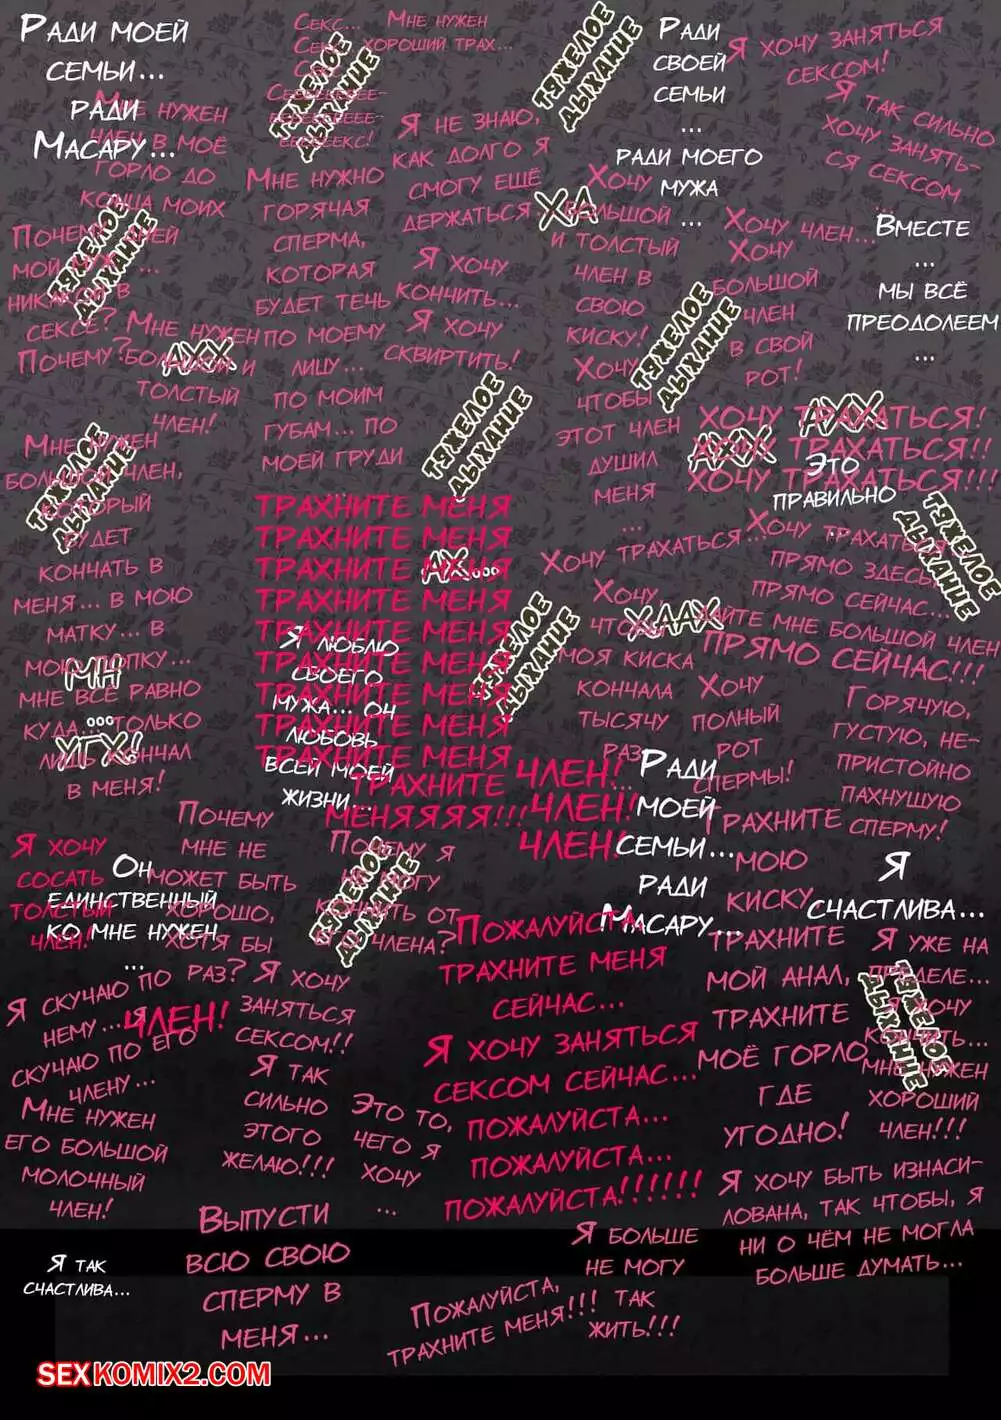 Ради моей
семьи...
ради
Масару...
Мне нужен
член в моё
горло до
конца моих
дней
...
Почему
мой муж
никакой в
сексе?
Почему?
Тяжелое
дыхание
Мне нужен
большой и
толстый
член!
Ахх
Мне нужен
большой член,
который
будет
кончать в
меня... в мою
матку... в
мою попку...
мне всё равно
куда... только
лишь кончал
в меня!
Тяжелое
дыхание
Мн
...
Угх!
Секс...
Секс
Сееееееее-
ееееееееее-
ееееееекс!
Мне нужен
хороший трах...
Тяжелое
дыхание
Мне нужно
горячая
сперма,
которая
будет течь
по моему
лицу...
по моим
губам... по
моей груди
Я не знаю,
как долго я
смогу ещё
держаться...
Я хочу
кончить...
Я хочу
сквиртить!
Тяжелое
дыхание
Трахните меня
Трахните меня
Трахните меня
Трахните меня
Трахните меня
Трахните меня
Трахните меня
Трахните меня
Трахните меня
Трахните
меняяяя!!!
Ах...
Я люблю
своего
мужа... Он
любовь
всей моей
жизни...
Тяжелое
дыхание
Ха
Хочу
большой
и толстый
член в
свою
киску!
Хочу
чтобы
этот член
душил
меня
...
Хочу трахаться...
Хочу
чтобы
моя киска
кончала
тысячу
раз
Тяжелое
дыхание
Хаах
Член!
Член!
Член!
Ради
своей
семьи
...
ради моего
мужа
...
Я хочу заняться
сексом!
Я так
сильно
хочу занять-
ся сексом
...
Хочу член...
Хочу
большой
член
в свой
рот!
Тяжелое
дыхание
Вместе
...
мы всё
преодолеем
...
Хочу трахаться!
Хочу трахаться!!
Хочу трахаться!!!
Ахх
Ахх
Это
правильно
...
Хочу трахаться
прямо здесь
прямо сейчас...
дайте мне большой член
прямо сейчас!!!
Тяжелое
дыхание
Хочу
полный
рот
спермы!
Горячую,
густую, не-
пристойно
пахнущую
сперму!
Ради
моей
семьи...
ради
Масару...
Трахните
мою
киску
трахните
мой анал,
трахните
моё горло
где
угодно!
Я
счастлива...
Я уже на
пределе...
я хочу
кончить...
мне нужен
хороший
член!!!
Тяжелое
дыхание
Я хочу
сосать
толстый
член!
Он
единственный
ко мне нужен
...
Почему
мне не
может быть
хорошо,
хотя бы
раз?
Почему я
не могу
кончить от
члена?
Тяжелое
дыхание
Я скучаю по
нему... я
скучаю по его
члену...
Член!
Мне нужен
его большой
молочный
член!
Я хочу
заняться
сексом!!
Я так
сильно
этого
желаю!!!
Это то,
чего я
хочу
...
Пожалуйста
трахните меня
сейчас...
Я хочу заняться
сексом сейчас...
пожалуйста...
пожалуйста...
пожалуйста!!!!!!
Я хочу быть изнаси-
лована, так чтобы, я
ни о чём не могла
больше думать...
Выпусти
всю свою
сперму в
меня...
Я так
счастлива...
Я больше
не могу
так
жить!!!
Пожалуйста,
трахните меня!!!
SEXKOMIX2.COM